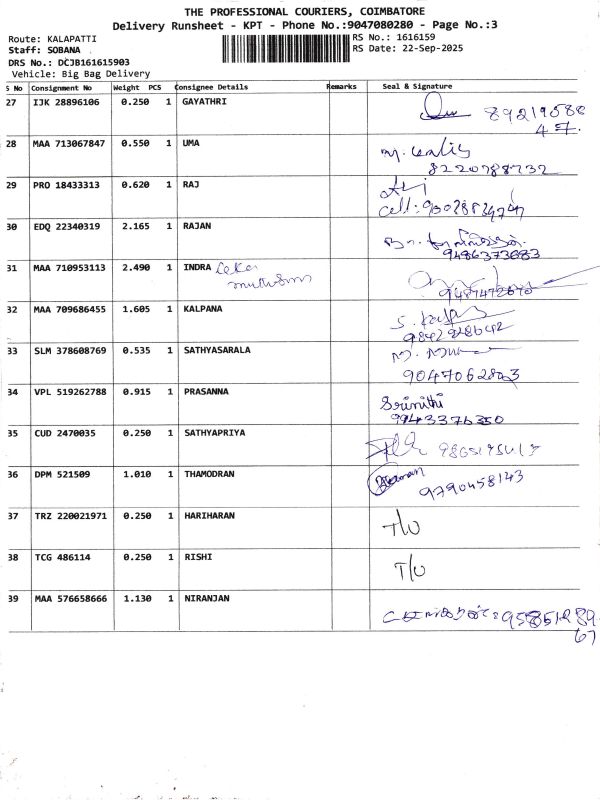 THE PROFESSIONAL COURIERS, COIMBATORE
Delivery Runsheet - KPT - Phone No.:9047080280 - Page No.:3
Route: KALAPATTI
RS No.: 1616159
Staff: SOBANA
RS Date: 22-Sep-2025
DRS No.: DCJB161615903
Vehicle: Big Bag Delivery
S No Consignment No Weight PCS Consignee Details Remarks Seal & Signature
27 IJK 28896106 0.250 1 GAYATHRI
28 MAA 713067847 0.550 1 UMA
8220788732
29 PRO 18433313 0.620 1 RAJ
Cell:
30 EDQ 22340319 2.165 1 RAJAN
9486373683
31 MAA 710953113 2.490 1 INDRA
32 MAA 709686455 1.605 1 KALPANA
33 SLM 378608769 0.535 1 SATHYASARALA
34 VPL 519262788 0.915 1 PRASANNA Srinithi
9943376350
35 CUD 2470035 0.250 1 SATHYAPRIYA
36 DPM 521509 1.010 1 THAMODRAN
9790458143
37 TRZ 220021971 0.250 1 HARIHARAN T/U
38 TCG 486114 0.250 1 RISHI T/U
39 MAA 576658666 1.130 1 NIRANJAN